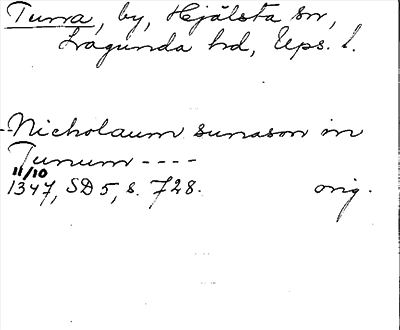 Turra, by, Hjälsta sn,
Lagunda hd, Ups. l.
--Nicholaum sunason in
Turrum ----
11/10
1347, SD 5, s. 728. orig.